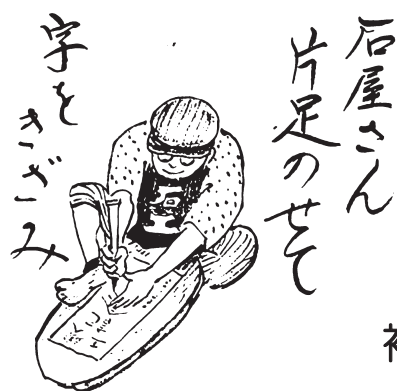 石屋さん
片足のせて
字を
きざみ